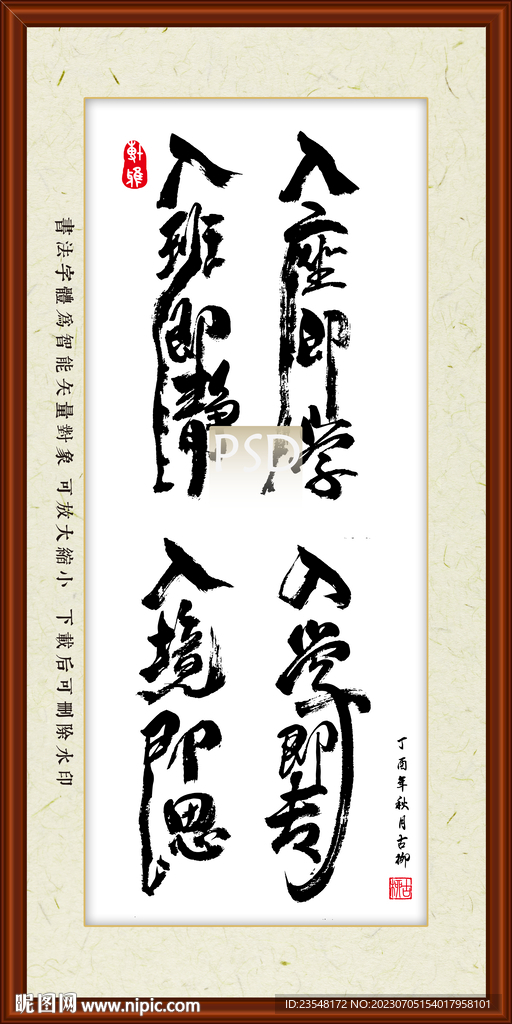 入座即学
入学即专
入班即静
入境即思
丁酉年秋月古柳
書法字體爲智能矢量對象 可放大縮小 下載后可刪除水印
PSD
昵图网 www.nipic.com
ID:23548172 NO:20230705154017958101